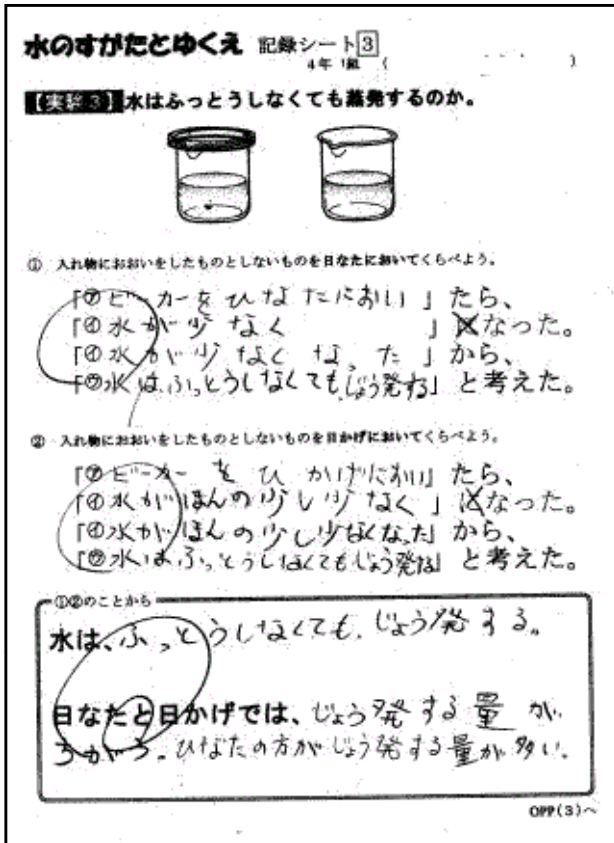 水のすがたとゆくえ 記録シート3
4年 1組 ( )
【実験3】水はふっとうしなくても蒸発するのか。
① 入れ物におおいをしたものとしないものを日なたにおいてくらべよう。
「㋐ビーカーをひなたにおい」たら、
「㋑水が少なく 」になった。
「㋑水が少なくなった」から、
「㋒水は、ふっとうしなくても、じょう発する」と考えた。
② 入れ物におおいをしたものとしないものを日かげにおいてくらべよう。
「㋐ビーカーをひかげにおい」たら、
「㋑水がほんの少し少なく」になった。
「㋑水がほんの少し少なくなった」から、
「㋒水はふっとうしなくてもじょう発する」と考えた。
①②のことから
水は、ふっとうしなくても、じょう発する。
日なたと日かげでは、じょう発する量が、
ちがう。ひなたの方がじょう発する量が多い。
OPP(3)へ